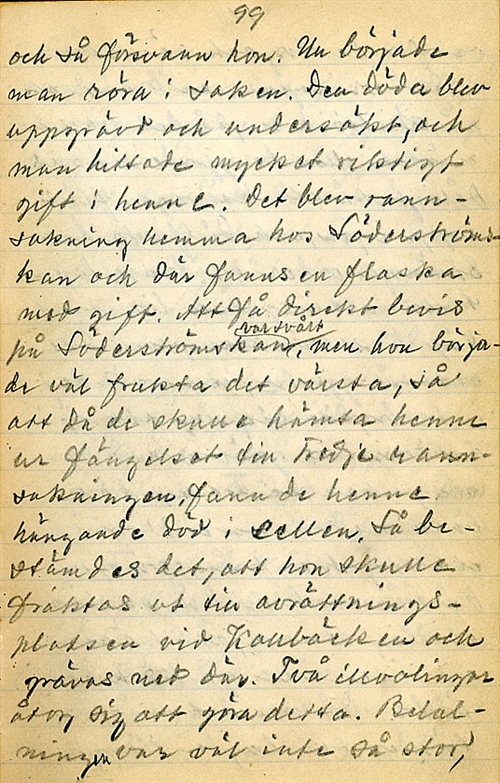 99
och så försvann hon. Nu började
man röra i saken. Den döda blev
uppgrävd och undersökt, och
man hittade mycket riktigt
gift i henne. Det blev rann-
sakning hemma hos Söderströms-
kan och där fanns en flaska
med gift. Att få direkt bevis
var svårt
på Söderströmskan, men hon börja-
de väl frukta det värsta, så
att då de skulle hämta henne
ur fängelset till tredje rann-
sakningen, fann de henne
hängande död i cellen. Så be-
stämdes det, att hon skulle
fraktas ut till avrättnings-
platsen vid Kallbäcken och
grävas ned där. Två illvalingar
åtog sig att göra detta. Betal-
ningen var väl inte så stor,